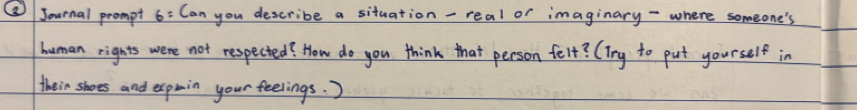 ② Journal prompt 6: Can you describe a situation - real or imaginary - where someone's
human rights were not respected? How do you think that person felt? (Try to put yourself in
their shoes and explain your feelings.)